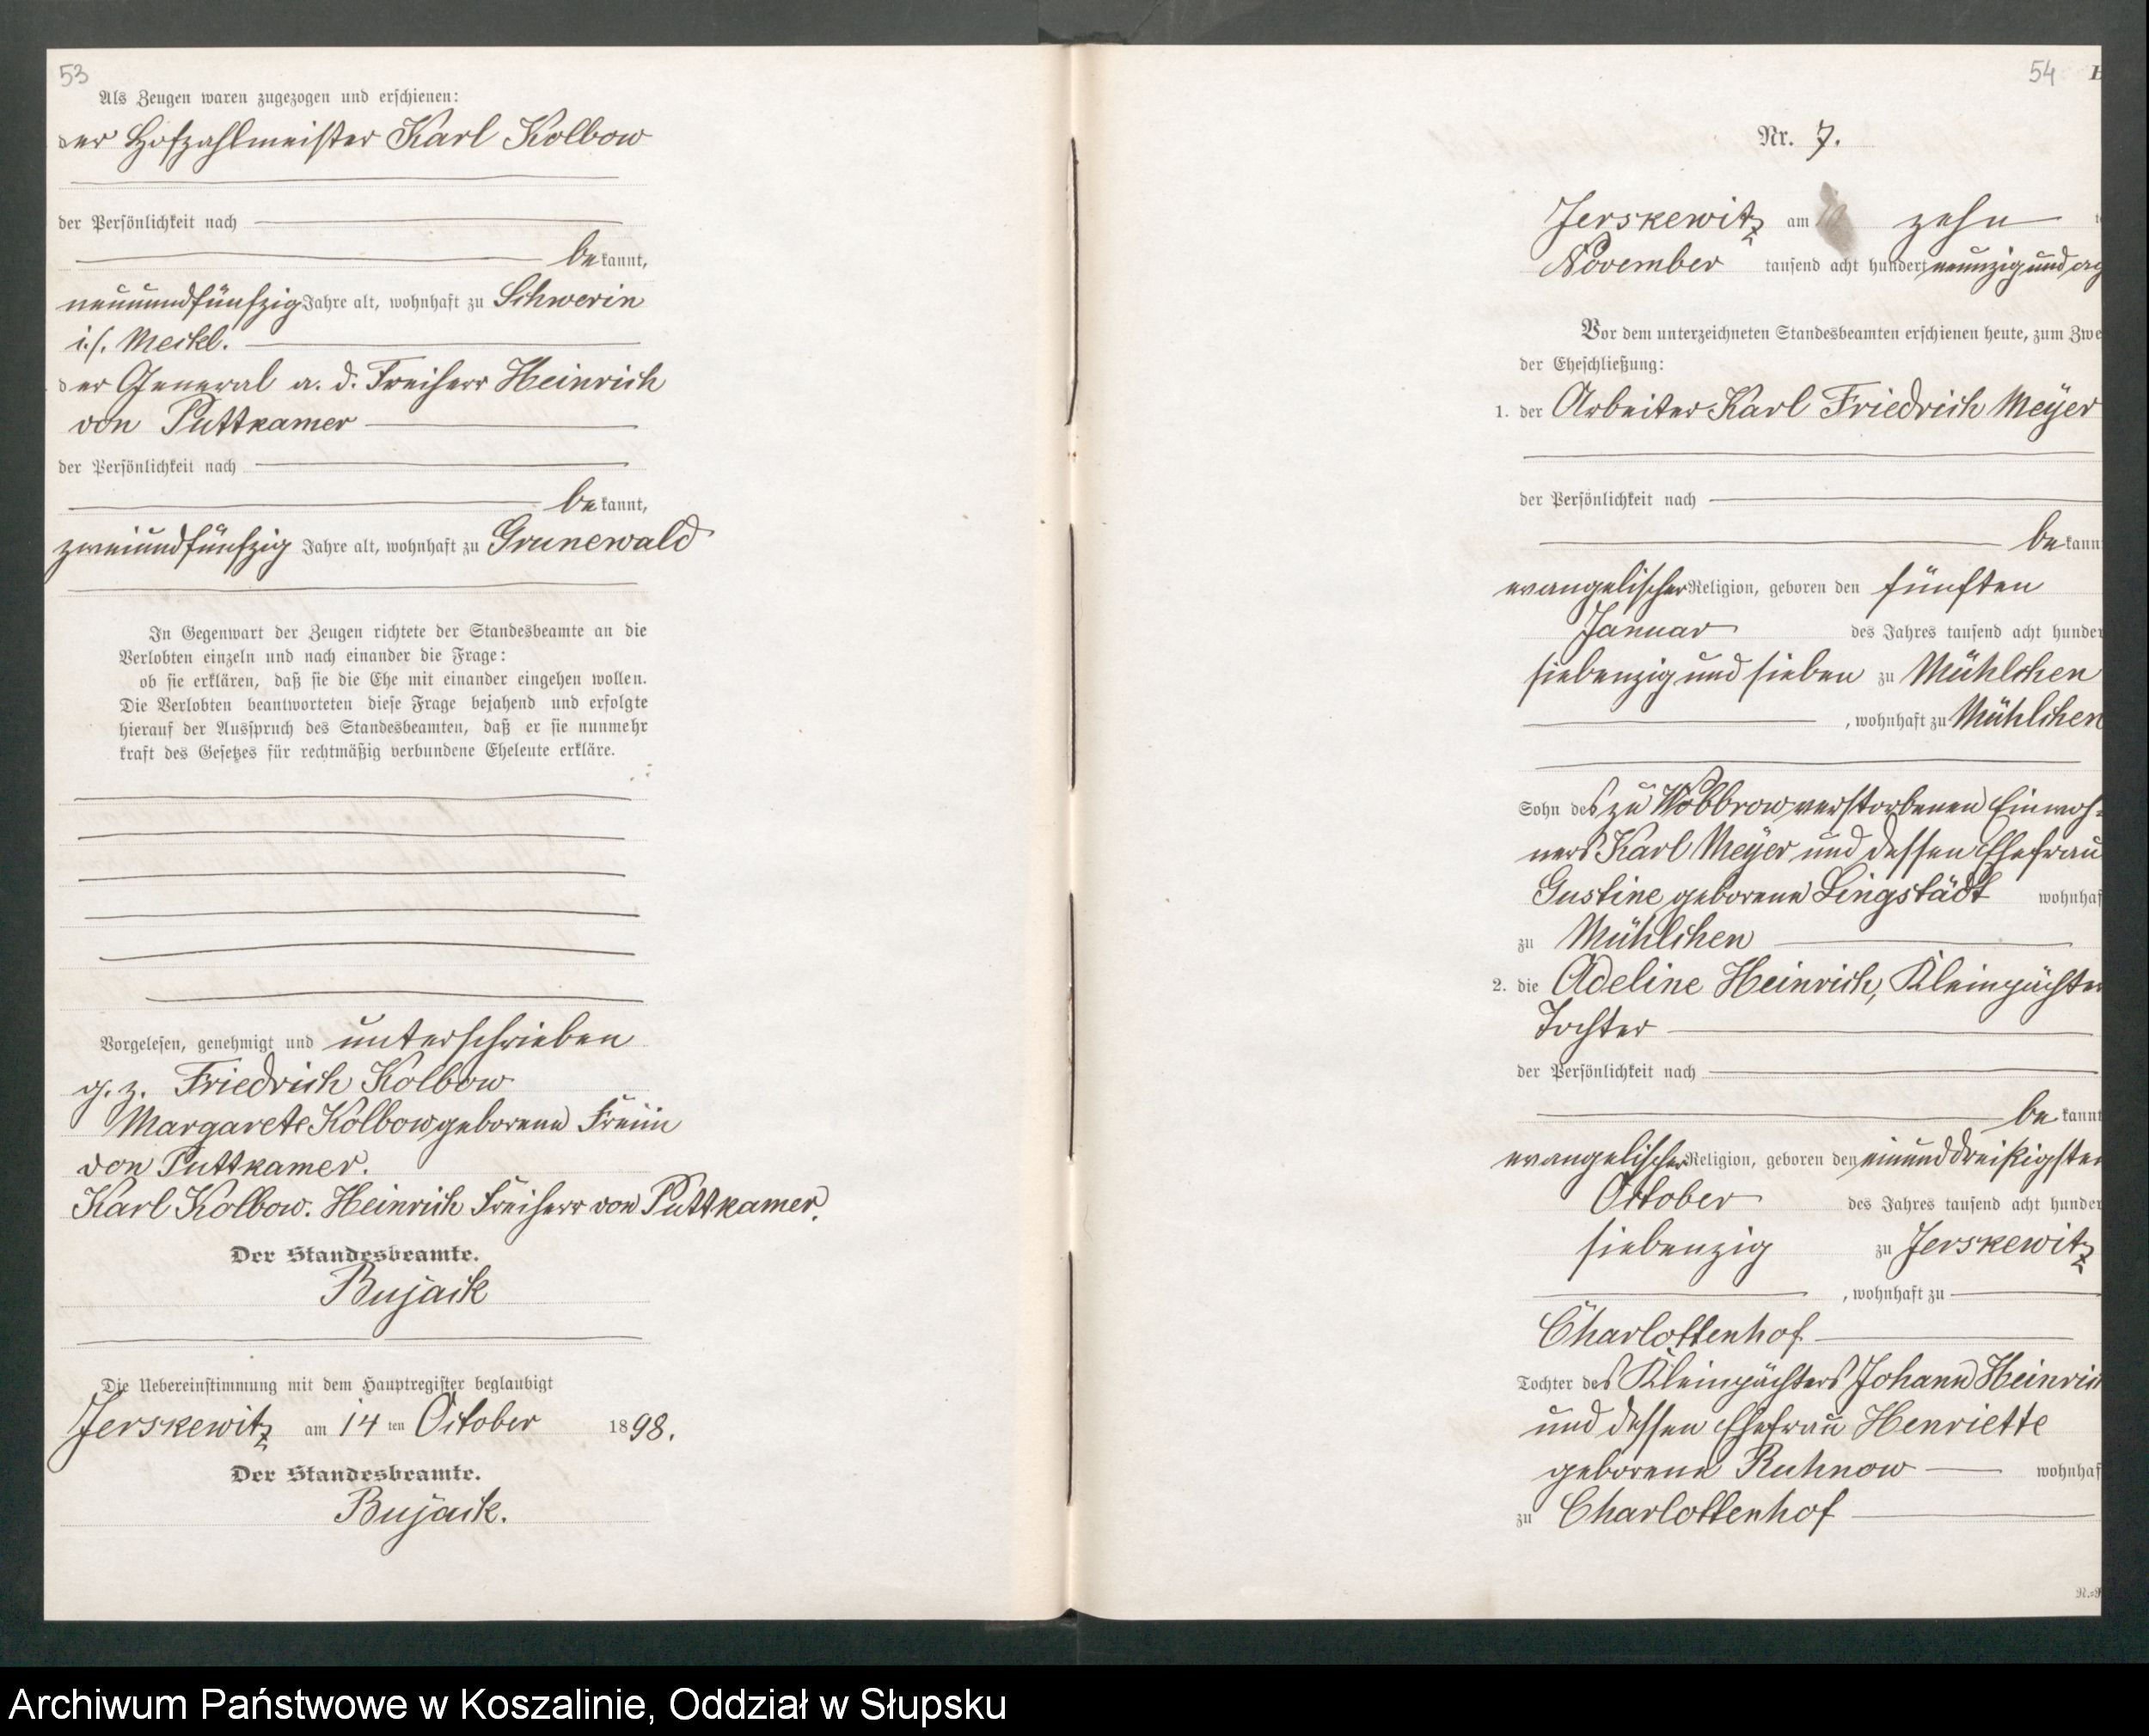 53
Als Zeugen waren zugezogen und erschienen:
der Hofzahlmeister Karl Kolbow
der Persönlichkeit nach
bekannt,
neunundfünfzig Jahre alt, wohnhaft zu Schwerin
i./. Meckl.
der General a. d. Freiherr Heinrich
von Puttkamer
der Persönlichkeit nach
bekannt,
zweiundfünfzig Jahre alt, wohnhaft zu Grunewald
In Gegenwart der Zeugen richtete der Standesbeamte an die
Verlobten einzeln und nach einander die Frage:
ob sie erklären, daß sie die Ehe mit einander eingehen wollen.
Die Verlobten beantworteten diese Frage bejahend und erfolgte
hierauf der Ausspruch des Standesbeamten, daß er sie nunmehr
kraft des Gesetzes für rechtmäßig verbundene Eheleute erkläre.
Vorgelesen, genehmigt und unterschrieben
g. z. Friedrich Kolbow
Margarete Kolbow geborene Freiin
von Puttkamer.
Karl Kolbow. Heinrich Freiherr von Puttkamer.
Der Standesbeamte.
Bujack
Die Uebereinstimmung mit dem Hauptregister beglaubigt
Jerskewitz am 14 ten October 1898.
Der Standesbeamte.
Bujack.
54
Nr. 7.
Jerskewitz am zehn
November tausend acht hundert neunzig und ac
Vor dem unterzeichneten Standesbeamten erschienen heute, zum Zwe
der Eheschließung:
1. der Arbeiter Karl Friedrich Meyer
der Persönlichkeit nach
bekann
evangelischer Religion, geboren den fünften
Januar des Jahres tausend acht hunder
siebenzig und sieben zu Mühlchen
, wohnhaft zu Mühlchen
Sohn des zu Wobbrow verstorbenen Einwoh-
ners Karl Meyer und dessen Ehefrau
Gustine geborene Lingstädt wohnhaf
zu Mühlchen
2. die Adeline Heinrich, Kleinpächter
Tochter
der Persönlichkeit nach
bekannt
evangelischer Religion, geboren den einunddreißigsten
October des Jahres tausend acht hunder
siebenzig zu Jerskewitz
, wohnhaft zu
Charlottenhof
Tochter des Kleinpächters Johann Heinrich
und dessen Ehefrau Henriette
geborene Ruhnow wohnhaf
zu Charlottenhof
Archiwum Państwowe w Koszalinie, Oddział w Słupsku